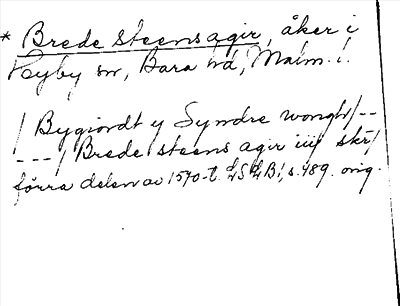 * Brede steens agir, åker i
Hyby sn, Bara hd, Malm. l.
/ Bygiordt y Syndre wongh /--
---/ Brede steens agir iiij skr/
förra delen av 1570-t. LSLB:, s. 489. orig.